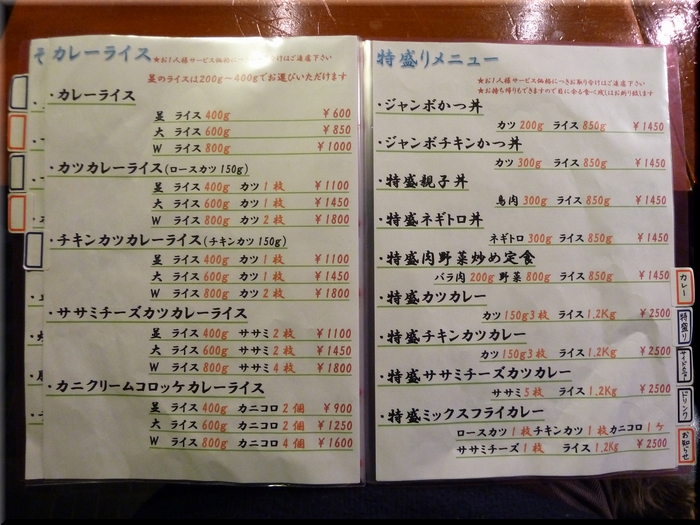 カレーライス
★お1人様サービス価格につきお取り分けはご遠慮下さい
並のライスは200g～400gでお選びいただけます
・カレーライス
並 ライス 400g ¥600
大 ライス 600g ¥850
W ライス 800g ¥1000
・カツカレーライス(ロースカツ150g)
並 ライス 400g カツ1枚 ¥1100
大 ライス 600g カツ1枚 ¥1450
W ライス 800g カツ2枚 ¥1800
・チキンカツカレーライス(チキンカツ150g)
並 ライス 400g カツ1枚 ¥1100
大 ライス 600g カツ1枚 ¥1450
W ライス 800g カツ2枚 ¥1800
・ササミチーズカツカレーライス
並 ライス 400g ササミ2枚 ¥1100
大 ライス 600g ササミ2枚 ¥1450
W ライス 800g ササミ4枚 ¥1800
・カニクリームコロッケカレーライス
並 ライス 400g カニコロ2個 ¥900
大 ライス 600g カニコロ2個 ¥1250
W ライス 800g カニコロ4個 ¥1600
特盛りメニュー
★お1人様サービス価格につきお取り分けはご遠慮下さい
★お持ち帰りもできますので目に余る食べ残しはお断り致します
・ジャンボかつ丼
カツ 200g ライス 850g ¥1450
・ジャンボチキンかつ丼
カツ 300g ライス 850g ¥1450
・特盛親子丼
鳥肉 300g ライス 850g ¥1450
・特盛ネギトロ丼
ネギトロ 300g ライス 850g ¥1450
・特盛肉野菜炒め定食
バラ肉 200g 野菜 800g ライス 850g ¥1450
・特盛カツカレー
カツ 150g3枚 ライス 1.2Kg ¥2500
・特盛チキンカツカレー
カツ 150g3枚 ライス 1.2Kg ¥2500
・特盛ササミチーズカツカレー
ササミ5枚 ライス 1.2Kg ¥2500
・特盛ミックスフライカレー
ロースカツ1枚 チキンカツ1枚 カニコロ1ケ
ササミチーズ1枚 ライス 1.2Kg ¥2500
カレー
特盛り
ドリンク
お知らせ